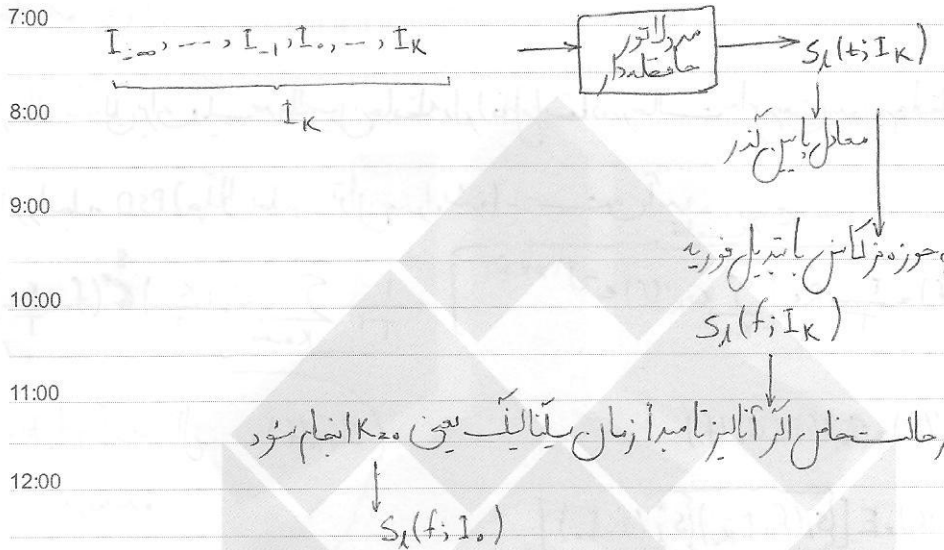 7:00
I₋∞, ---, I₋₁, I₀, --, I_K → مدولاتور حافظه‌دار → S_l(t; I_K)
I_K
8:00
معادل پایین گذر
9:00
حوزه فرکانس با تبدیل فوریه
10:00
S_l(f; I_K)
11:00
حالت خاص اگر آنالیز تا مبدأ زمان سیگنالینگ یعنی K=0 انجام شود
12:00
S_l(f; I₀)